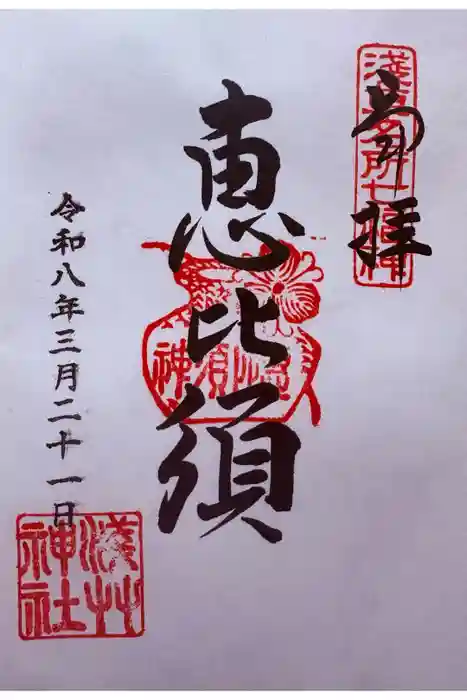 奉拝
淺草名所七福神
恵比須
恵比須神
令和八年三月二十一日
淺艸
神社